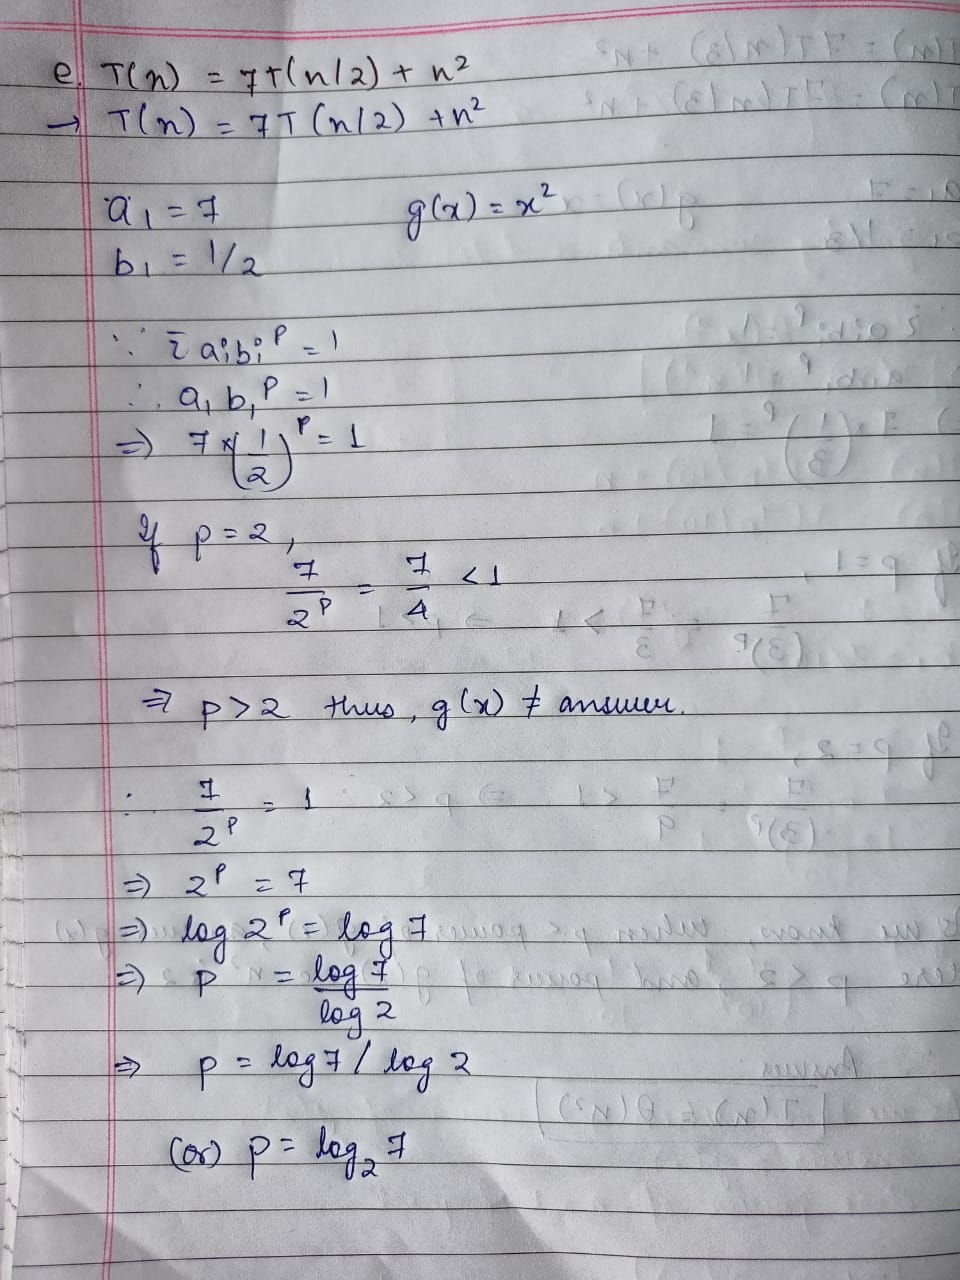 e. T(n) = 7T(n/2) + n²
→ T(n) = 7T(n/2) + n²
a₁ = 7 g(x) = x²
b₁ = 1/2
∵ Σ aᵢbᵢᵖ = 1
∴ a₁b₁ᵖ = 1
⇒ 7 × (1/2)ᵖ = 1
If p = 2,
7/2ᵖ = 7/4 < 1
⇒ p > 2 thus, g(x) ≠ answer.
∴ 7/2ᵖ = 1
⇒ 2ᵖ = 7
⇒ log 2ᵖ = log 7
⇒ p = log 7/log 2
⇒ p = log 7 / log 2
(or) p = log₂ 7